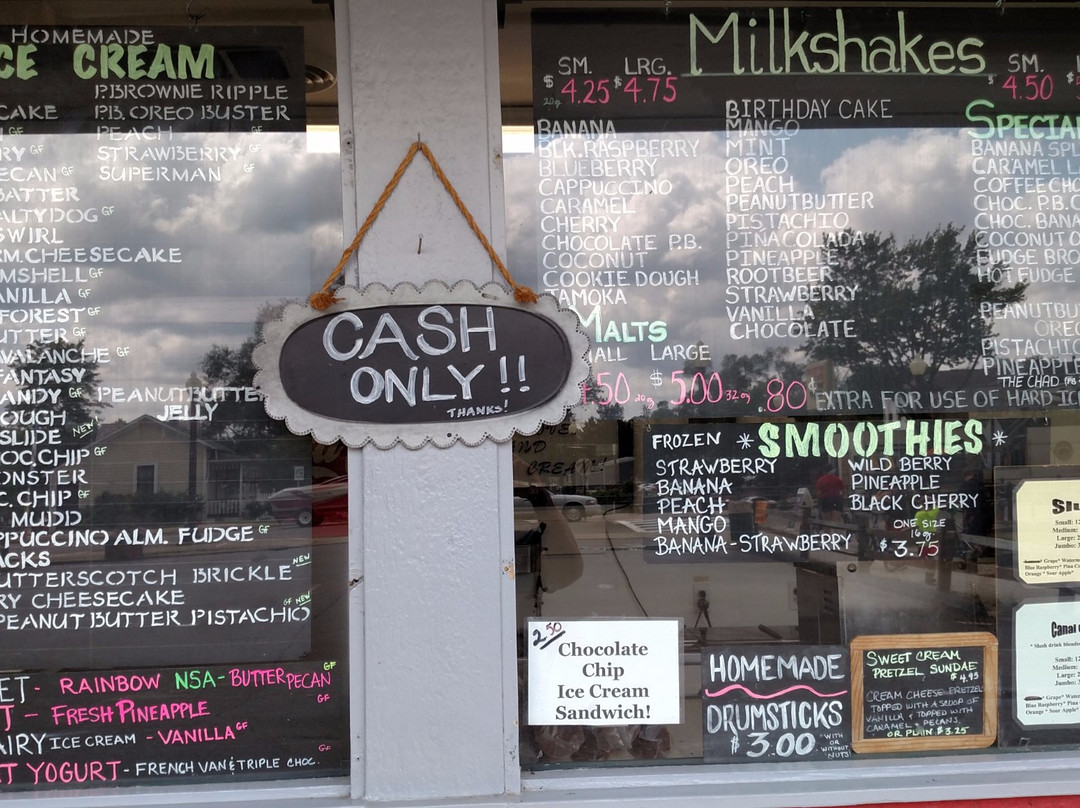 HOMEMADE
CE CREAM
P.B. BROWNIE RIPPLE
CAKE P.B. OREO BUSTER
PEACH GF
RY GF STRAWBERRY GF
ECAN GF SUPERMAN GF
BATTER
ALTY DOG GF
SWIRL
RM. CHEESECAKE
MSHELL GF
ANILLA GF
FOREST GF
UTTER GF
VALANCHE GF
FANTASY
ANDY GF PEANUTBUTTER
JELLY
OUGH
SLIDE NEW
OC. CHIP GF
ONSTER
C. CHIP GF
MUDD
PPUCCINO ALM. FUDGE GF
ACKS
UTTERSCOTCH BRICKLE NEW
RY CHEESECAKE
PEANUT BUTTER PISTACHIO GF NEW
ET - RAINBOW NSA - BUTTER PECAN GF
T - FRESH PINEAPPLE GF
AIRY ICE CREAM - VANILLA GF
T YOGURT - FRENCH VAN & TRIPLE CHOC. GF
CASH
ONLY!!
THANKS!
Milkshakes
SM. LRG.
$4.25 $4.75
20g
SM.
$4.50
BANANA
BLK. RASPBERRY
BLUEBERRY
CAPPUCCINO
CARAMEL
CHERRY
CHOCOLATE P.B.
COCONUT
COOKIE DOUGH
TAMOKA
BIRTHDAY CAKE
MANGO
MINT
OREO
PEACH
PEANUTBUTTER
PISTACHIO
PINA COLADA
PINEAPPLE
ROOTBEER
STRAWBERRY
VANILLA
CHOCOLATE
SPECIA
BANANA SPL
CARAMEL L
COFFEE CHO
CHOC. P.B. C
CHOC. BANA
COCONUT O
FUDGE BRO
HOT FUDGE
PEANUTBU
OREO
PISTACHIO
PINEAPPLE
THE CHAD
MALTS
ALL LARGE
50 20g $5.00 32og .80¢ EXTRA FOR USE OF HARD IC
FROZEN * SMOOTHIES *
STRAWBERRY
BANANA
PEACH
MANGO
BANANA - STRAWBERRY
WILD BERRY
PINEAPPLE
BLACK CHERRY
ONE SIZE
16g
$3.75
2.50
Chocolate
Chip
Ice Cream
Sandwich!
HOMEMADE
DRUMSTICKS
$3.00 WITH
OR
WITHOUT
NUTS!
SWEET CREAM
PRETZEL SUNDAE
$4.95
CREAM CHEESE PRETZEL
TOPPED WITH A SCOOP OF
VANILLA & TOPPED WITH
CARAMEL & PECANS.
OR PLAIN $3.25
Slu
Small: 12
Medium:
Large: 2
Jumbo: 3
Grape* Waterm
Blue Raspberry* Pina C
Orange * Sour Apple*
Canal
* Slush drink blende
Small: 12
Medium:
Large: 2
Jumbo: 3
Grape* Waterm
Blue Raspberry* Pina C
Orange * Sour Apple*